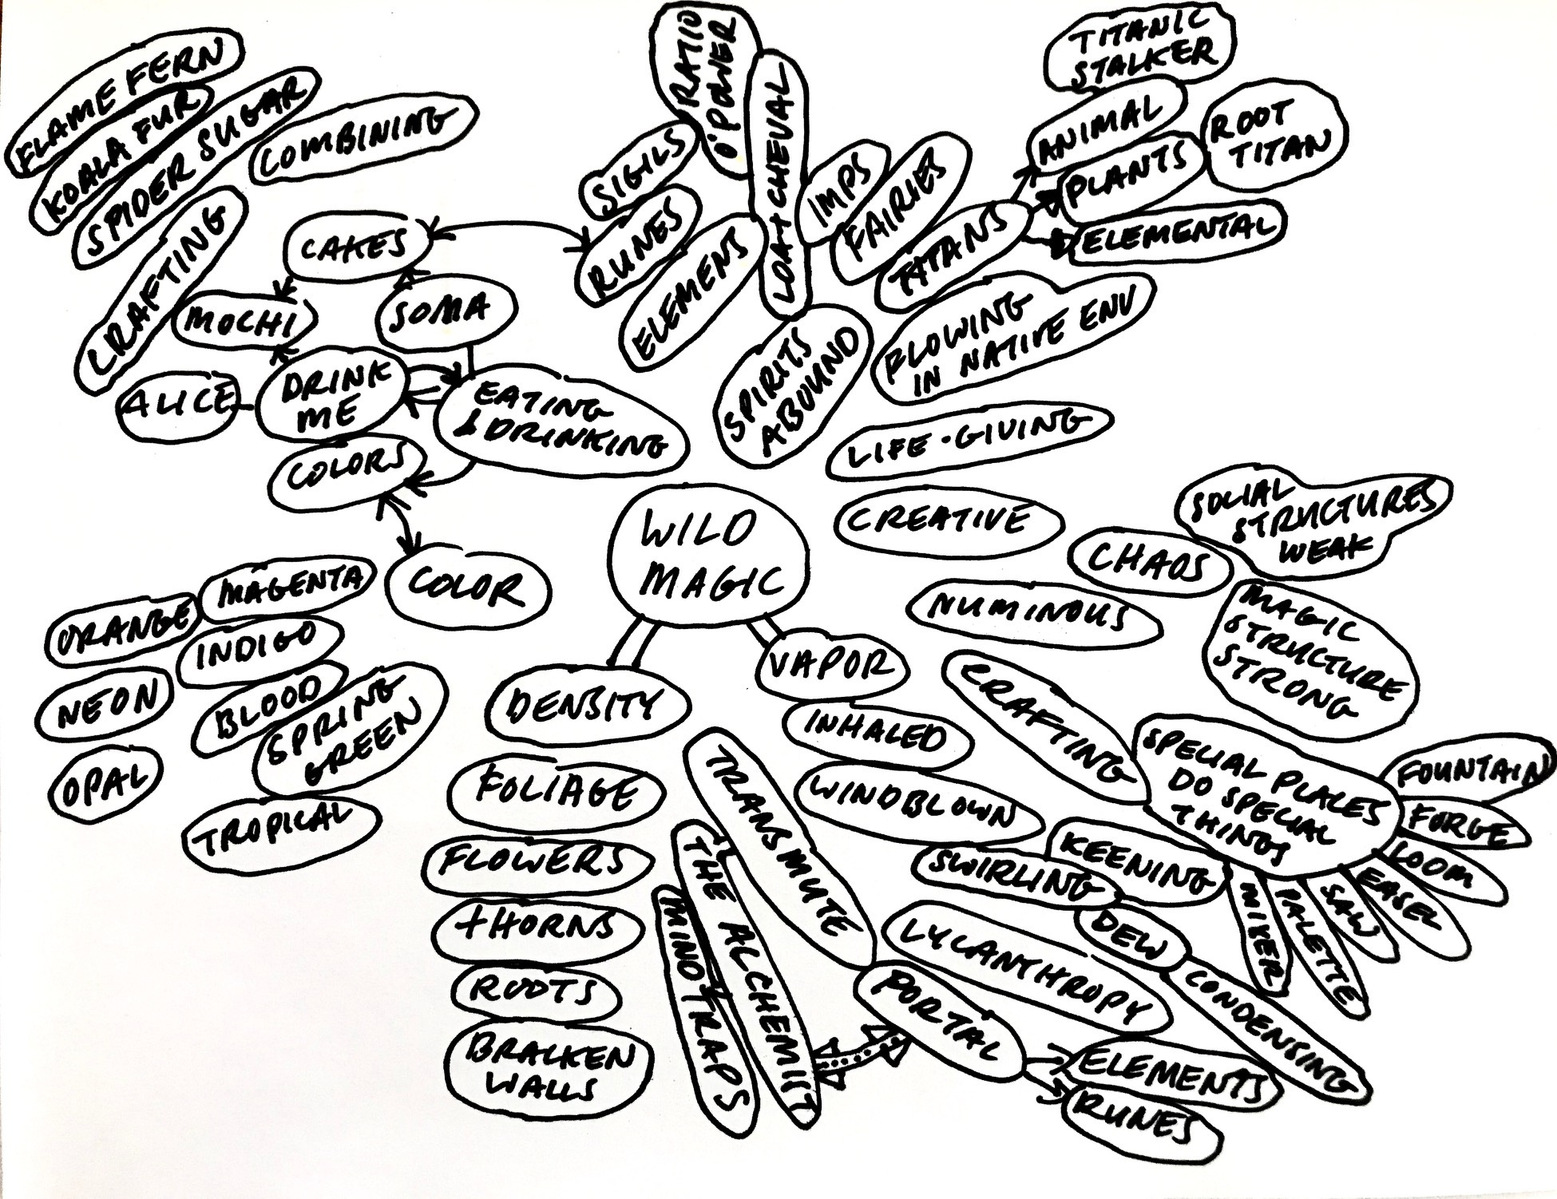 FLAME FERN
KOALA FUR
SPIDER SUGAR
COMBINING
CRAFTING
CAKES
MOCHI
SOMA
ALICE
DRINK
ME
EATING
& DRINKING
COLORS
COLOR
MAGENTA
ORANGE
INDIGO
NEON
BLOOD
SPRING
GREEN
OPAL
TROPICAL
RATIO
O' POWER
SIGILS
RUNES
ELEMENTS
CHEVAL
IMPS
FAIRIES
TITANS
TITANIC
STALKER
ANIMAL
PLANTS
ROOT
TITAN
ELEMENTAL
SPIRITS
ABOUND
FLOWING
IN NATIVE ENV
LIFE-GIVING
CREATIVE
NUMINOUS
CHAOS
SOCIAL
STRUCTURES
WEAK
MAGIC
STRUCTURE
STRONG
WILD
MAGIC
DENSITY
FOLIAGE
FLOWERS
THORNS
ROOTS
BRACKEN
WALLS
VAPOR
INHALED
WINDBLOWN
SWIRLING
KEENING
DEW
CONDENSING
CRAFTING
SPECIAL PLACES
DO SPECIAL
THINGS
FOUNTAIN
FORGE
LOOM
EASEL
SAW
PALETTE
MIXER
TRANSMUTE
THE ALCHEMIST
MIND TRAPS
LYCANTHROPY
PORTAL
ELEMENTS
RUNES